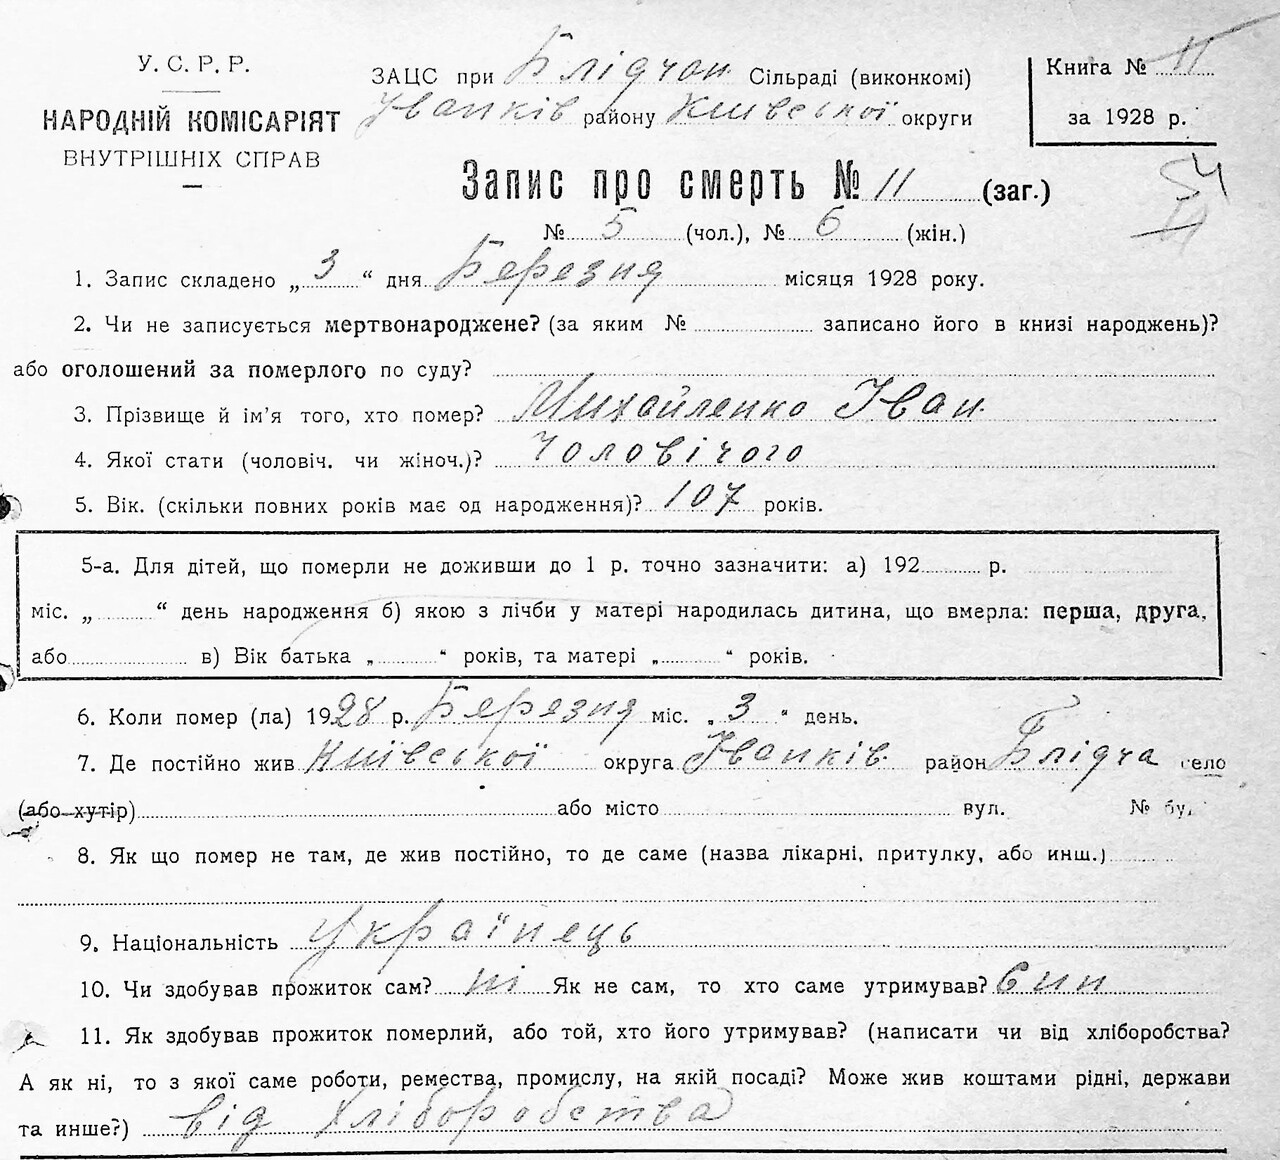 У. С. Р. Р.
НАРОДНІЙ КОМІСАРІЯТ
ВНУТРІШНІХ СПРАВ
ЗАЦС при Блідчан. Сільраді (виконкомі)
Іванків району Київської округи
Книга № 11
за 1928 р.
54
Запис про смерть № 11 (заг.)
№ 5 (чол.), № 6 (жін.)
1. Запис складено „ 3 “ дня Березня місяця 1928 року.
2. Чи не записується мертвонароджене? (за яким № записано його в книзі народжень)?
або оголошений за померлого по суду?
3. Прізвище й ім'я того, хто помер? Михайленко Іван
4. Якої стати (чоловіч. чи жіноч.)? Чоловічого
5. Вік. (скільки повних років має од народження)? 107 років.
5-а. Для дітей, що померли не доживши до 1 р. точно зазначити: а) 192 р.
міс. „ “ день народження б) якою з лічби у матері народилась дитина, що вмерла: перша, друга,
або в) Вік батька „ “ років, та матері „ “ років.
6. Коли помер (ла) 1928 р. Березня міс. „ 3 “ день.
7. Де постійно жив Київської округа Іванків. район Блідча село
(або хутір) або місто вул. № бу
8. Як що помер не там, де жив постійно, то де саме (назва лікарні, притулку, або инш.)
9. Національність Українець
10. Чи здобував прожиток сам? ні Як не сам, то хто саме утримував? Син
11. Як здобував прожиток померлий, або той, хто його утримував? (написати чи від хліборобства?
А як ні, то з якої саме роботи, ремества, промислу, на якій посаді? Може жив коштами рідні, держави
та инше?) від Хліборобства